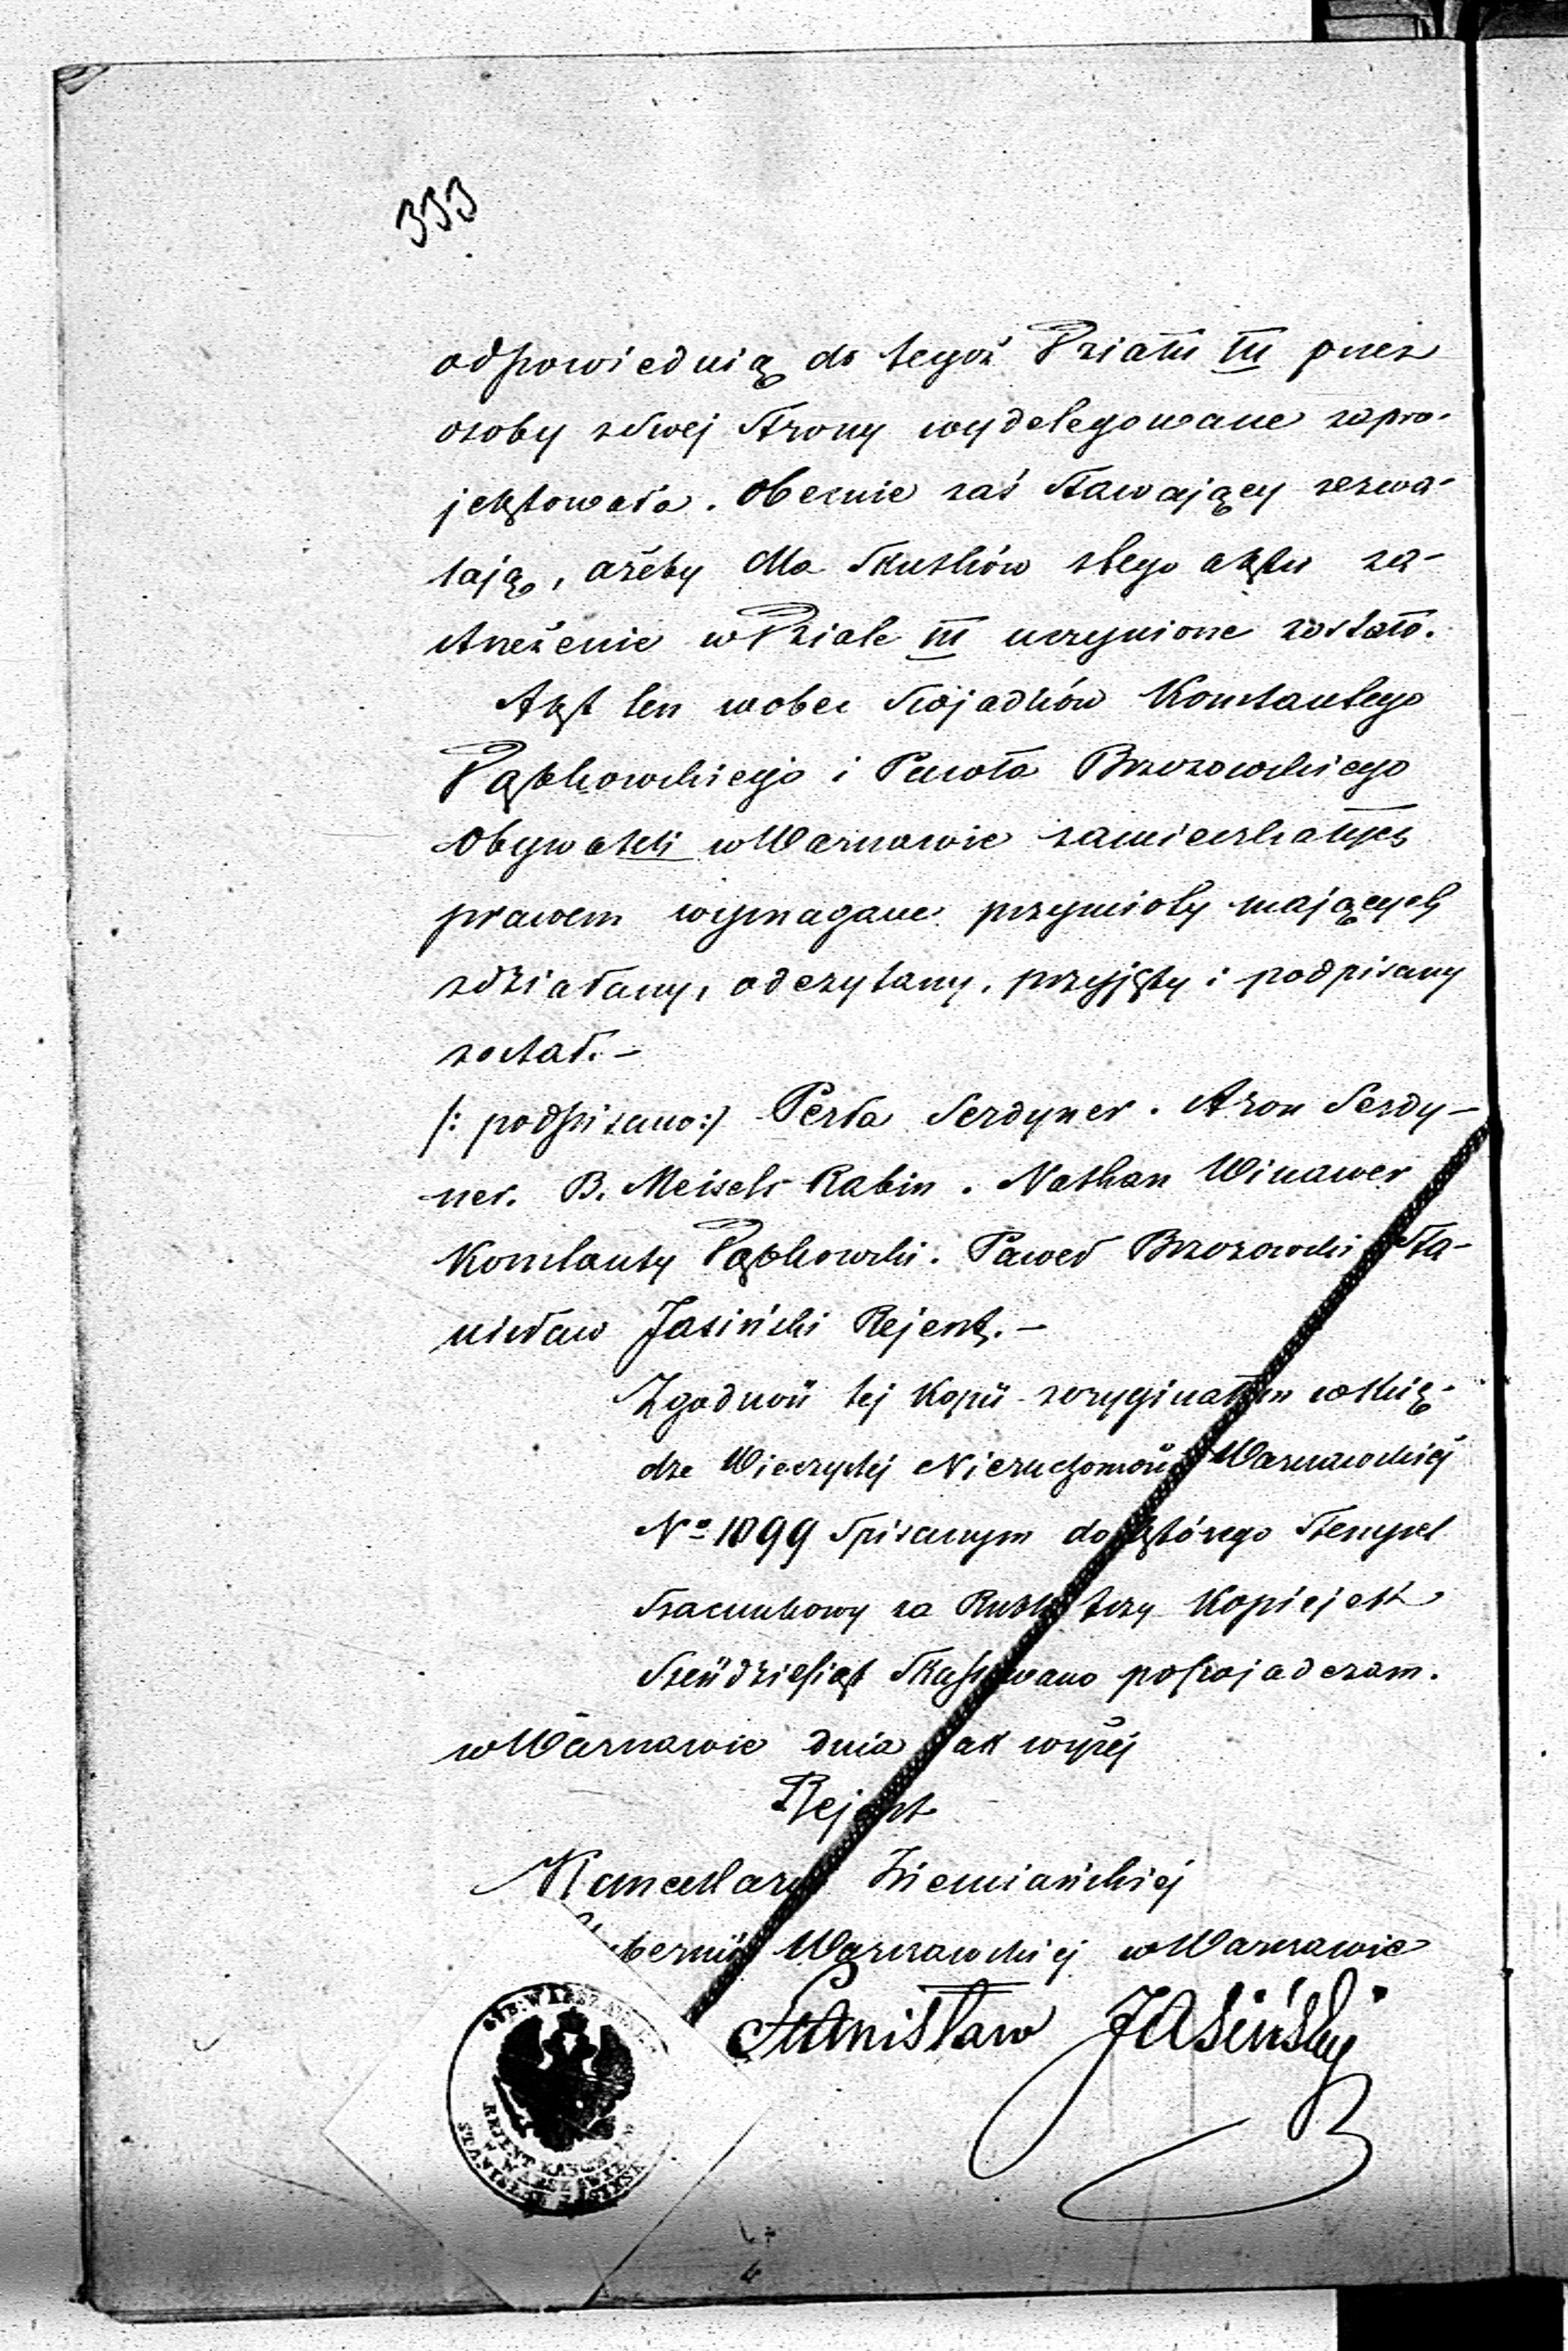 333
odpowiednią do tegoż Działu III przez
osoby z swej strony wydelegowane zapro-
jektowała. Obecnie zaś stawający zezwa-
lają, ażeby dla skutków z tego aktu za-
strzeżenie w Dziale III uczynione zostało.
Akt ten wobec Swiadków Konstantego
Dąbkowskiego i Pawła Brzozowskiego
Obywateli w Warszawie zamieszkałych
prawem wymagane przymioty mających
zdziałany, odczytany, przyjęty i podpisany
został. —
/: podpisano:/ Perła Serdyner. Aron Serdy-
ner. B. Meisels Rabin. Nathan Winawer
Konstanty Dąbkowski. Paweł Brzozowski Sta-
nisław Jasiński Rejent. —
Zgodność tej kopii z oryginałem w Księ-
dze Wieczystej Nieruchomości Warszawskiej
No 1099 Spisanym do którego Stempel
Szacunkowy za Rubli trzy Kopiejek
Sześćdziesiąt Skassowano poświadczam.
w Warszawie dnia jak wyżej
Rejent
Kancellaryi Ziemiańskiej
Gubernii Warszawskiej w Warszawie
Stanisław Jasiński
GUB: WARSZAWSK
REJENT KANC. ZIEM.
W WARSZAWIE
STANISŁAW JASIŃSKI